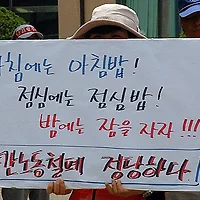 아침에는 아침밥!
점심에는 점심밥!
밤에는 잠을 자자!!!
노동철폐 정당하다!